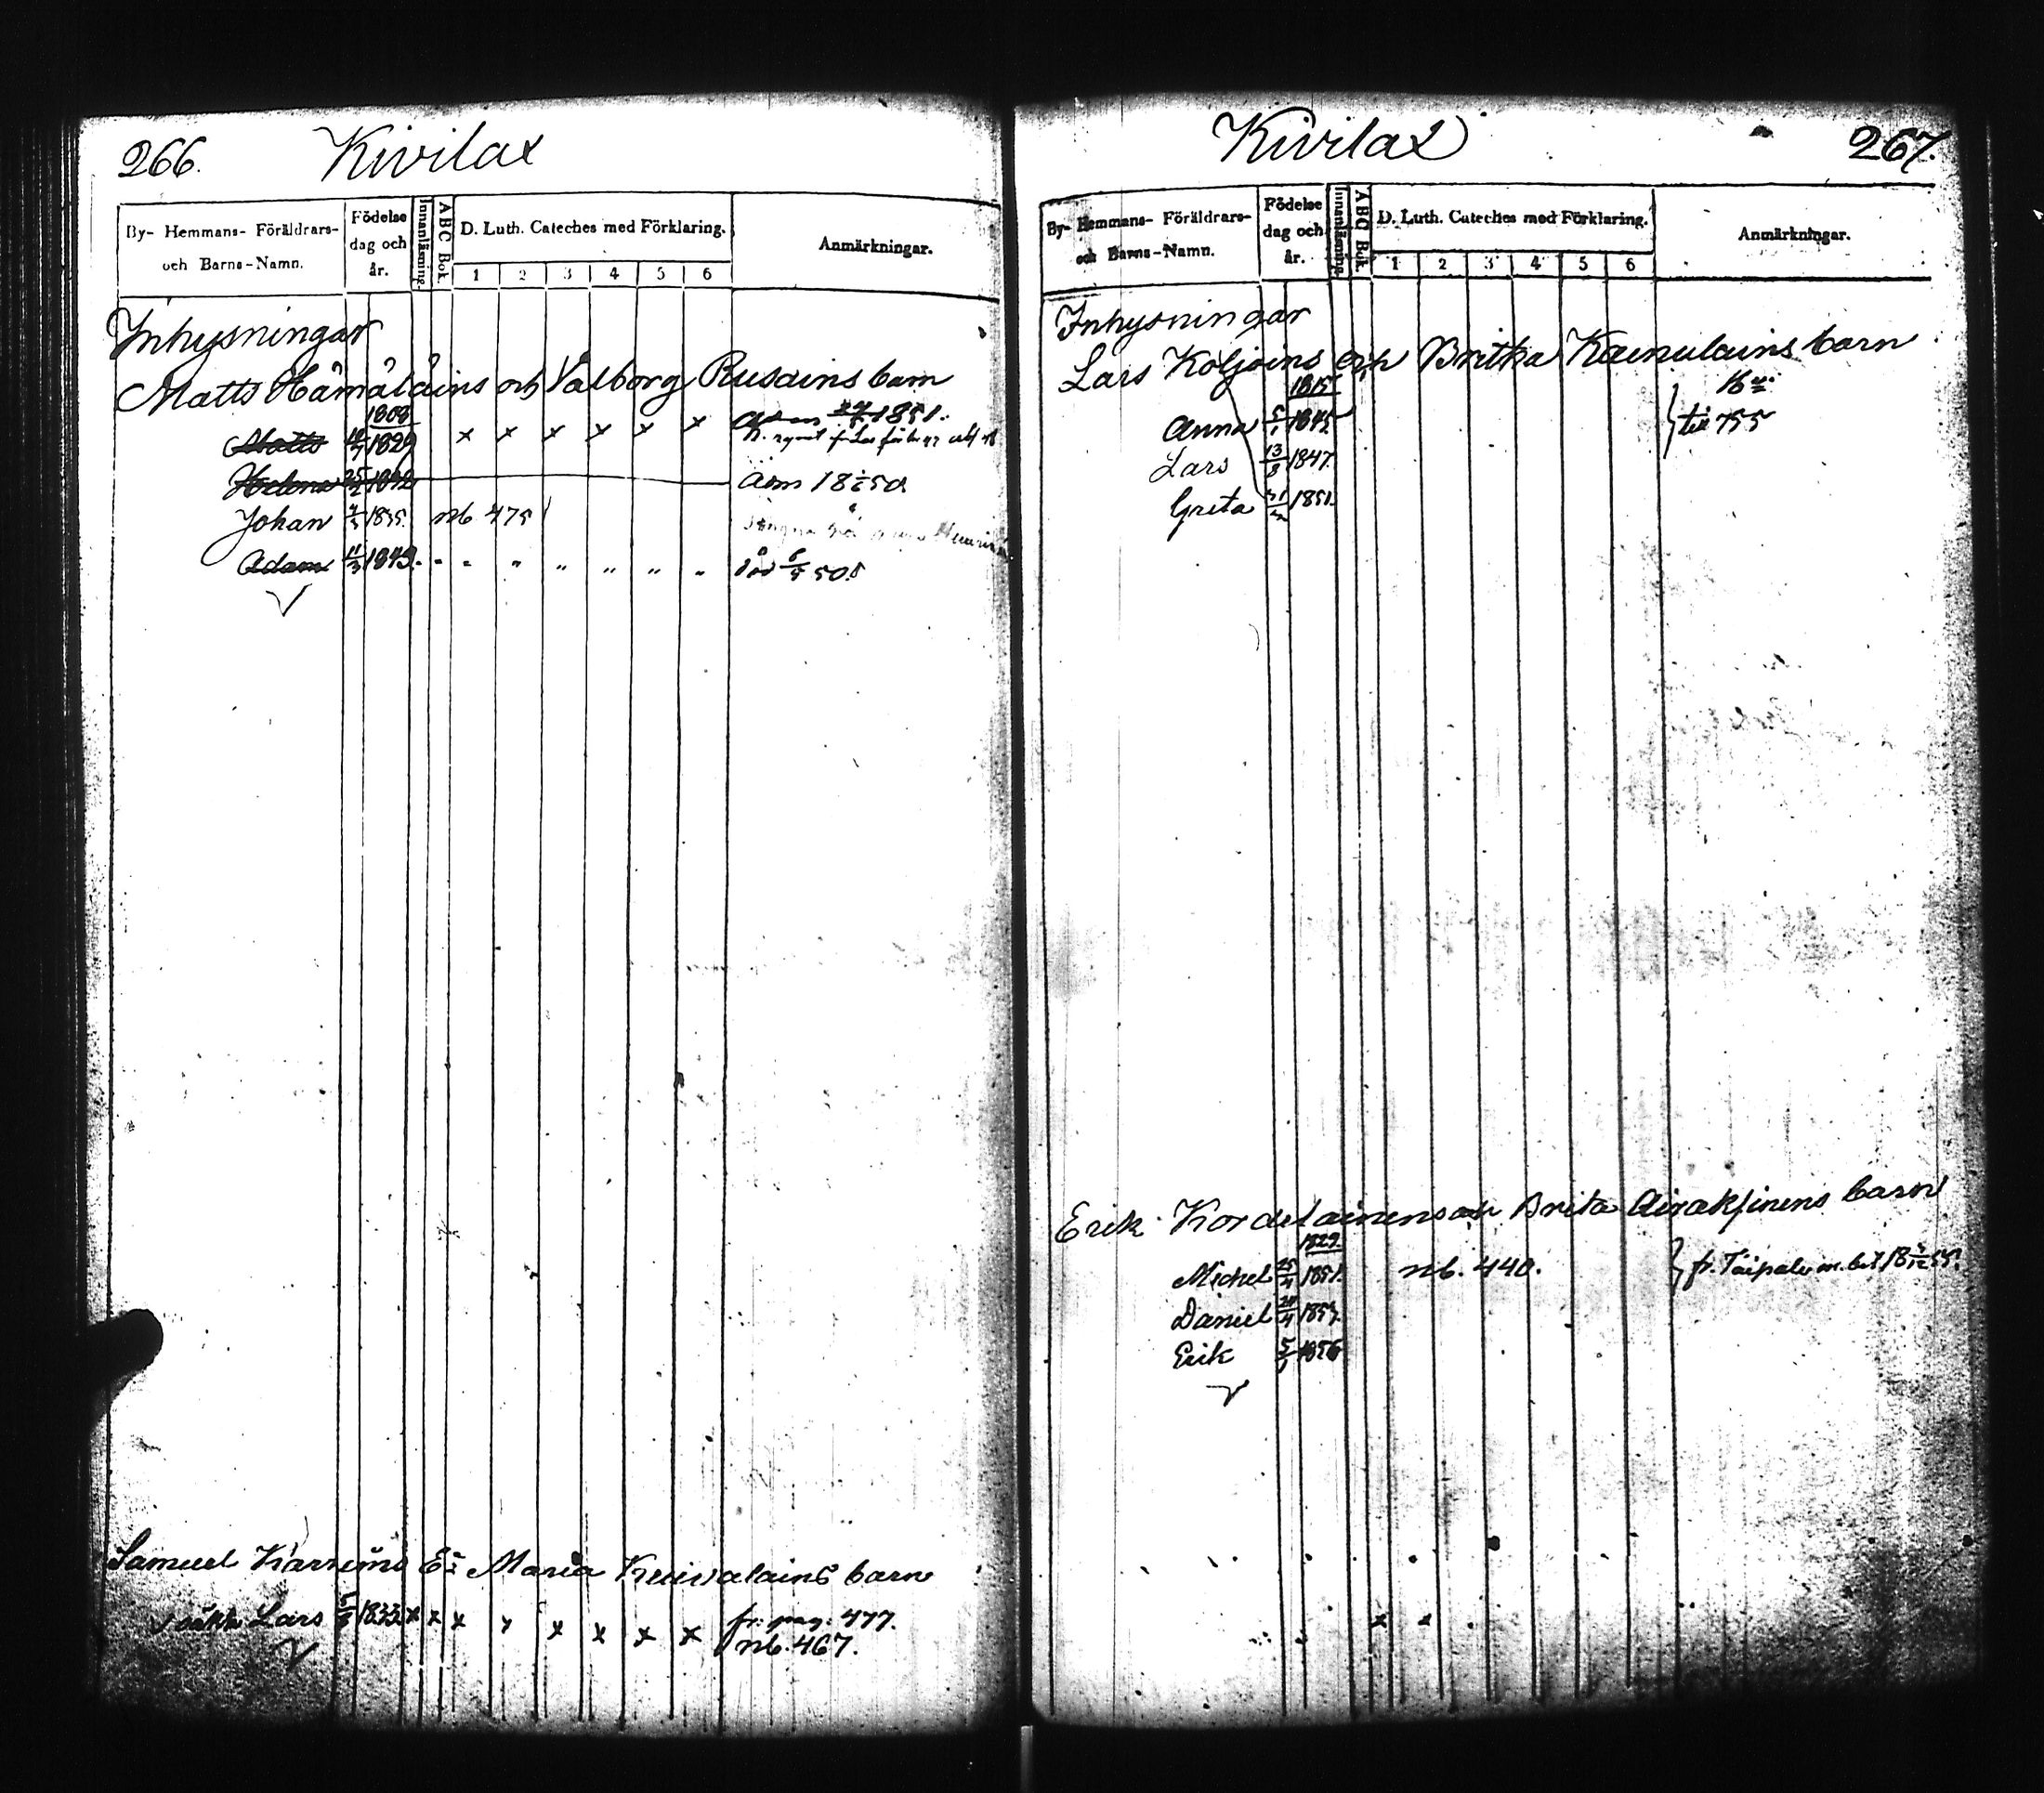 266. Kivilax
By- Hemmans- Föräldrars- och Barns-Namn. Födelse dag och år. Innanläsning. ABC Bok. D. Luth. Cateches med Förklaring. 1 2 3 4 5 6 Anmärkningar.
Inhysningar
Matts Hämäläins och Valborg Rusains barn
1808
Matts 1829 x x x x x x 1851.
Helena 25/2 1832 Adm 1850
Johan 1835. nb 475
Adam 11/3 1843. - - " " " " " död 6/5 50.
Samuel Karreins Maria barn
Lars 1833 x x x x x x x x fr. pag. 477.
nb. 467.
Kivilax 267.
By- Hemmans- Föräldrars- och Barns-Namn. Födelse dag och år. Innanläsning. ABC Bok. D. Luth. Cateches med Förklaring. 1 2 3 4 5 6 Anmärkningar.
Inhysningar
Lars Koljoins och Britha Kainulains barn
1815
Anna 1845 till 755
Lars 13/8 1847.
Greta 1851.
Erik Kordelainens och Brita Airaksinens barn
1829.
Michel 25/4 1851. nb. 440. fr. Taipale m. bet.
Daniel 1853.
Erik 1856